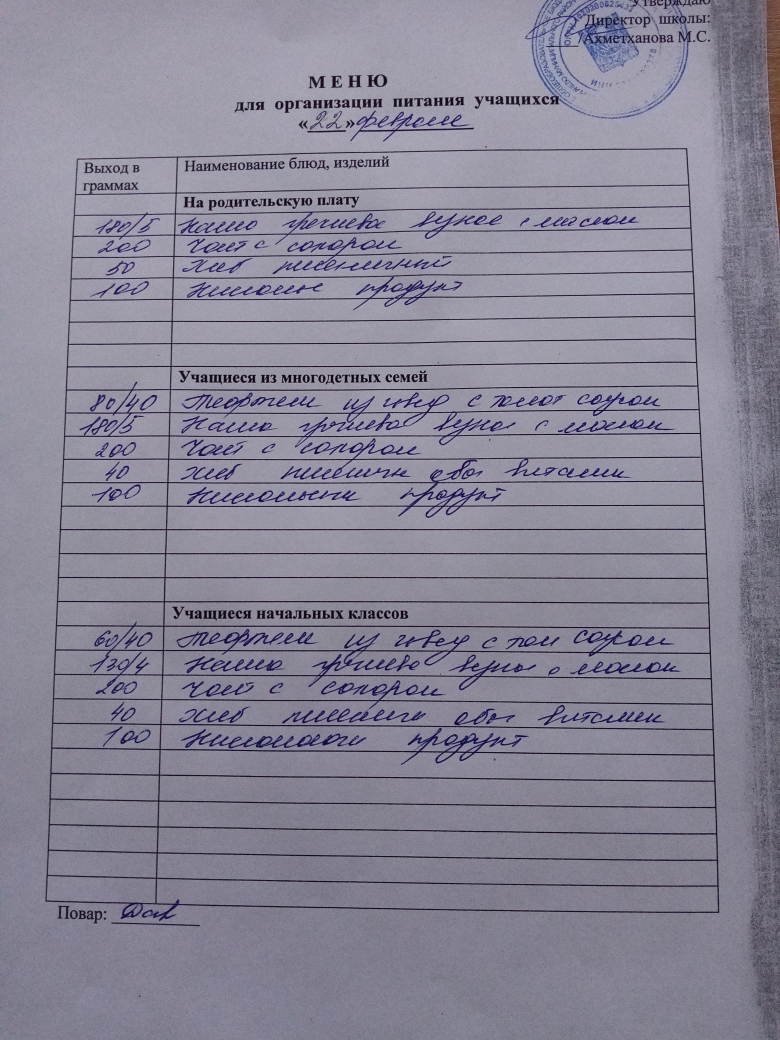 Утверждаю
Директор школы:
/Ахметханова М.С.
М Е Н Ю
для организации питания учащихся
«22» февраля
Выход в граммах Наименование блюд, изделий
На родительскую плату
180/5 Каша гречнева вязкое с маслом
200 Чай с сахаром
50 Хлеб пшеничный
100 Кисломол продукт
Учащиеся из многодетных семей
80/40 Тефтели из говяд с томат соусом
180/5 Каша гречнева вязкое с маслом
200 Чай с сахаром
40 Хлеб пшеничн обог витамин
100 Кисломолочн продукт
Учащиеся начальных классов
60/40 Тефтели из говяд с том соусом
130/4 Каша гречнева вязкое с маслом
200 Чай с сахаром
40 Хлеб пшеничн обог витамин
100 Кисломолочн продукт
Повар: